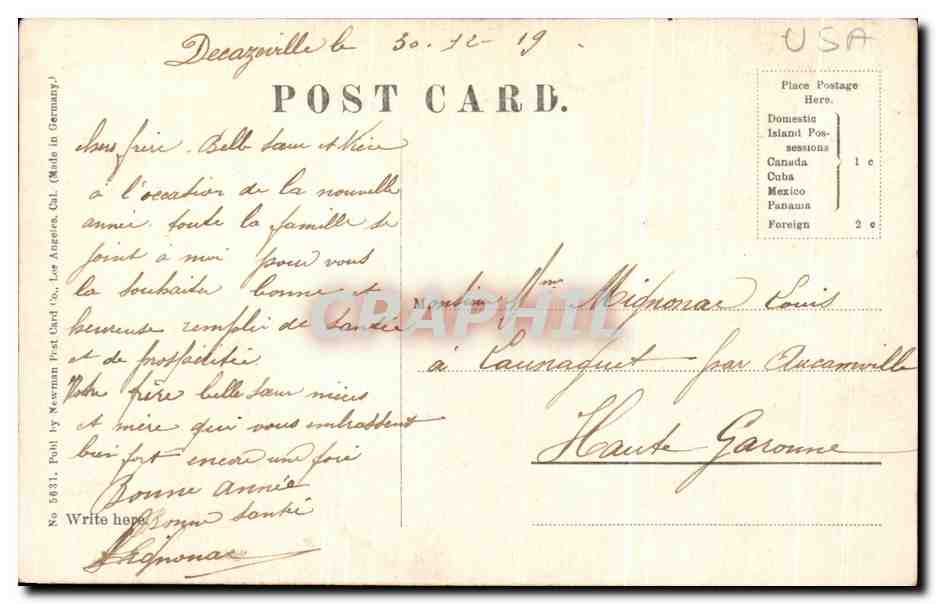 Decazeville le 30-12-19.
USA
POST CARD.
Place Postage
Here.
Domestic
Island Pos-
sessions
Canada 1 c
Cuba
Mexico
Panama
Foreign 2 c
No 5631. Publ by Newman Post Card Co., Los Angeles, Cal. (Made in Germany.)
chers frère. Belle sœur et Nièce
à l'occasion de la nouvelle
année toute la famille se
joint à moi pour vous
la souhaiter bonne et
heureuse remplie de santée
et de prospéritée
Votre frère belle sœur nièces
et mère qui vous embrassent
bien fort encore une fois
Bonne année
Bonne santé
Mignonac
Write here.
Monsieur Mme Mignonac Louis
à Launaguet par Aucamville
Haute Garonne
CPAPHIL